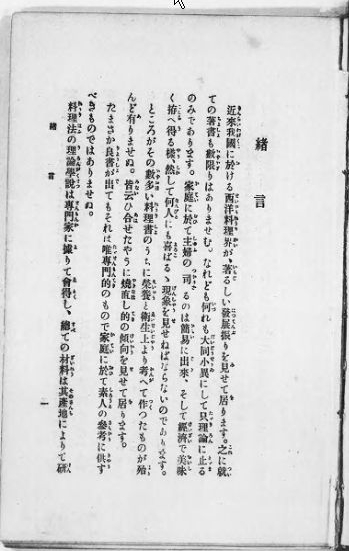 緒言
近來我國に於ける西洋料理界が、著るしい發展振りを見せて居ります。之に就
ての著書も數限りはありませむ。なれども何れも大同小異にして只理論に止る
のみであります。家庭に於て主婦の司るのは簡易に出來、そして經濟で美味
く拵へ得る樣、然して何人にも喜ばるゝ現象を見せねばならないのであります。
ところがその數多い料理書のうちに榮養と衞生上より考へて作つたものが殆
んど有りませぬ。皆云ひ合せたやうに燒直し的の傾向を見せて居ります。
たまさか良書が出てもそれは唯專門的のもので家庭に於て素人の參考に供す
べきものではありませぬ。
料理法の理論學說は專門家に據りて會得し、總ての材料は其產地によりて硏
緒言
一